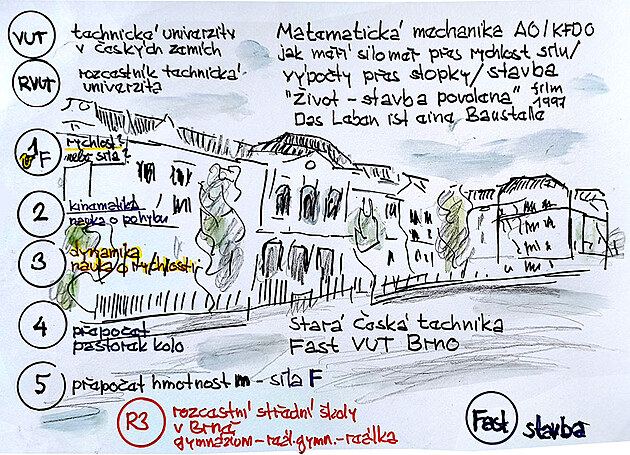 VUT technická univerzity
v českých zemích
RVUT rozcastník technická
univerzita
Matematická mechanika AO/KFDO
jak měří siloměr přes rychlost sílu/
výpočty přes stopky/stavba
"Život - stavba povolena" film
1997
Das Leben ist eine Baustelle
1F rychlost?
nebo síla?
2 kinematika
nauka o pohybu
3 dynamika
nauka o rychlosti
4 přepočet
pastorek kolo
Stará česká technika
Fast VUT Brno
5 přepočet hmotnost m - síla F
R3 rozcastní střední školy
v Brně
gymnázium - reál.gymn. - reálka
Fast stavba